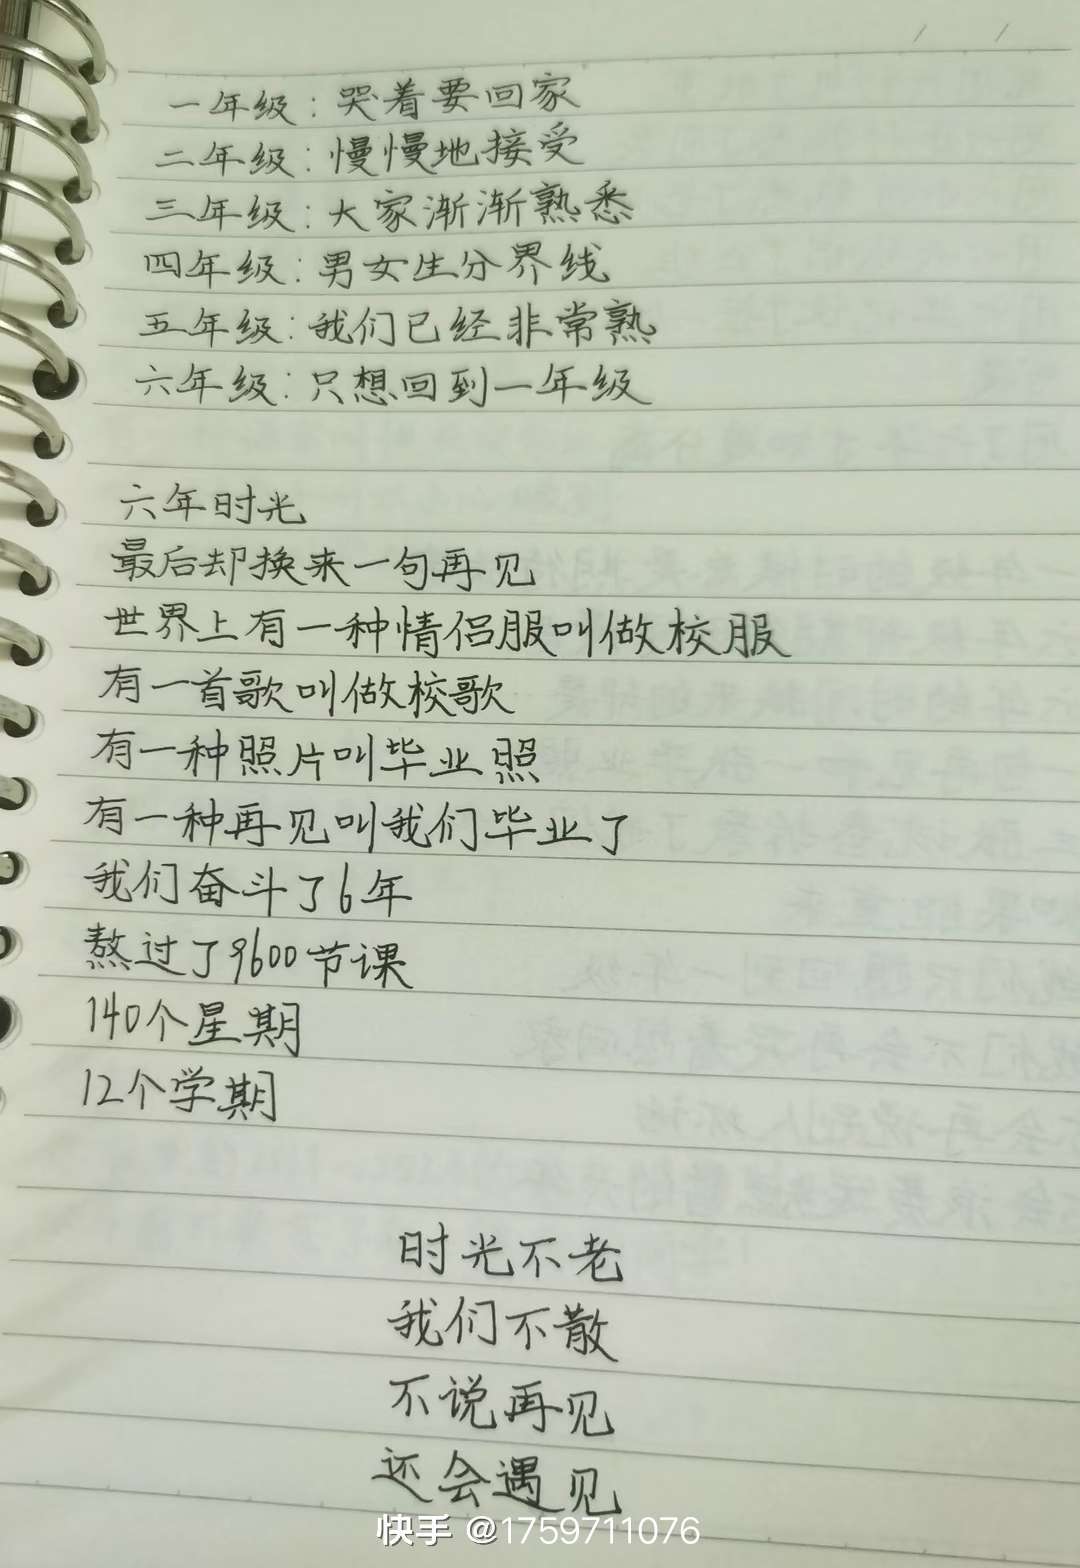 一年级:哭着要回家
二年级:慢慢地接受
三年级:大家渐渐熟悉
四年级:男女生分界线
五年级:我们已经非常熟
六年级:只想回到一年级
六年时光
最后却换来一句再见
世界上有一种情侣服叫做校服
有一首歌叫做校歌
有一种照片叫毕业照
有一种再见叫我们毕业了
我们奋斗了6年
熬过了9600节课
140个星期
12个学期
时光不老
我们不散
不说再见
还会遇见
快手 @1759711076